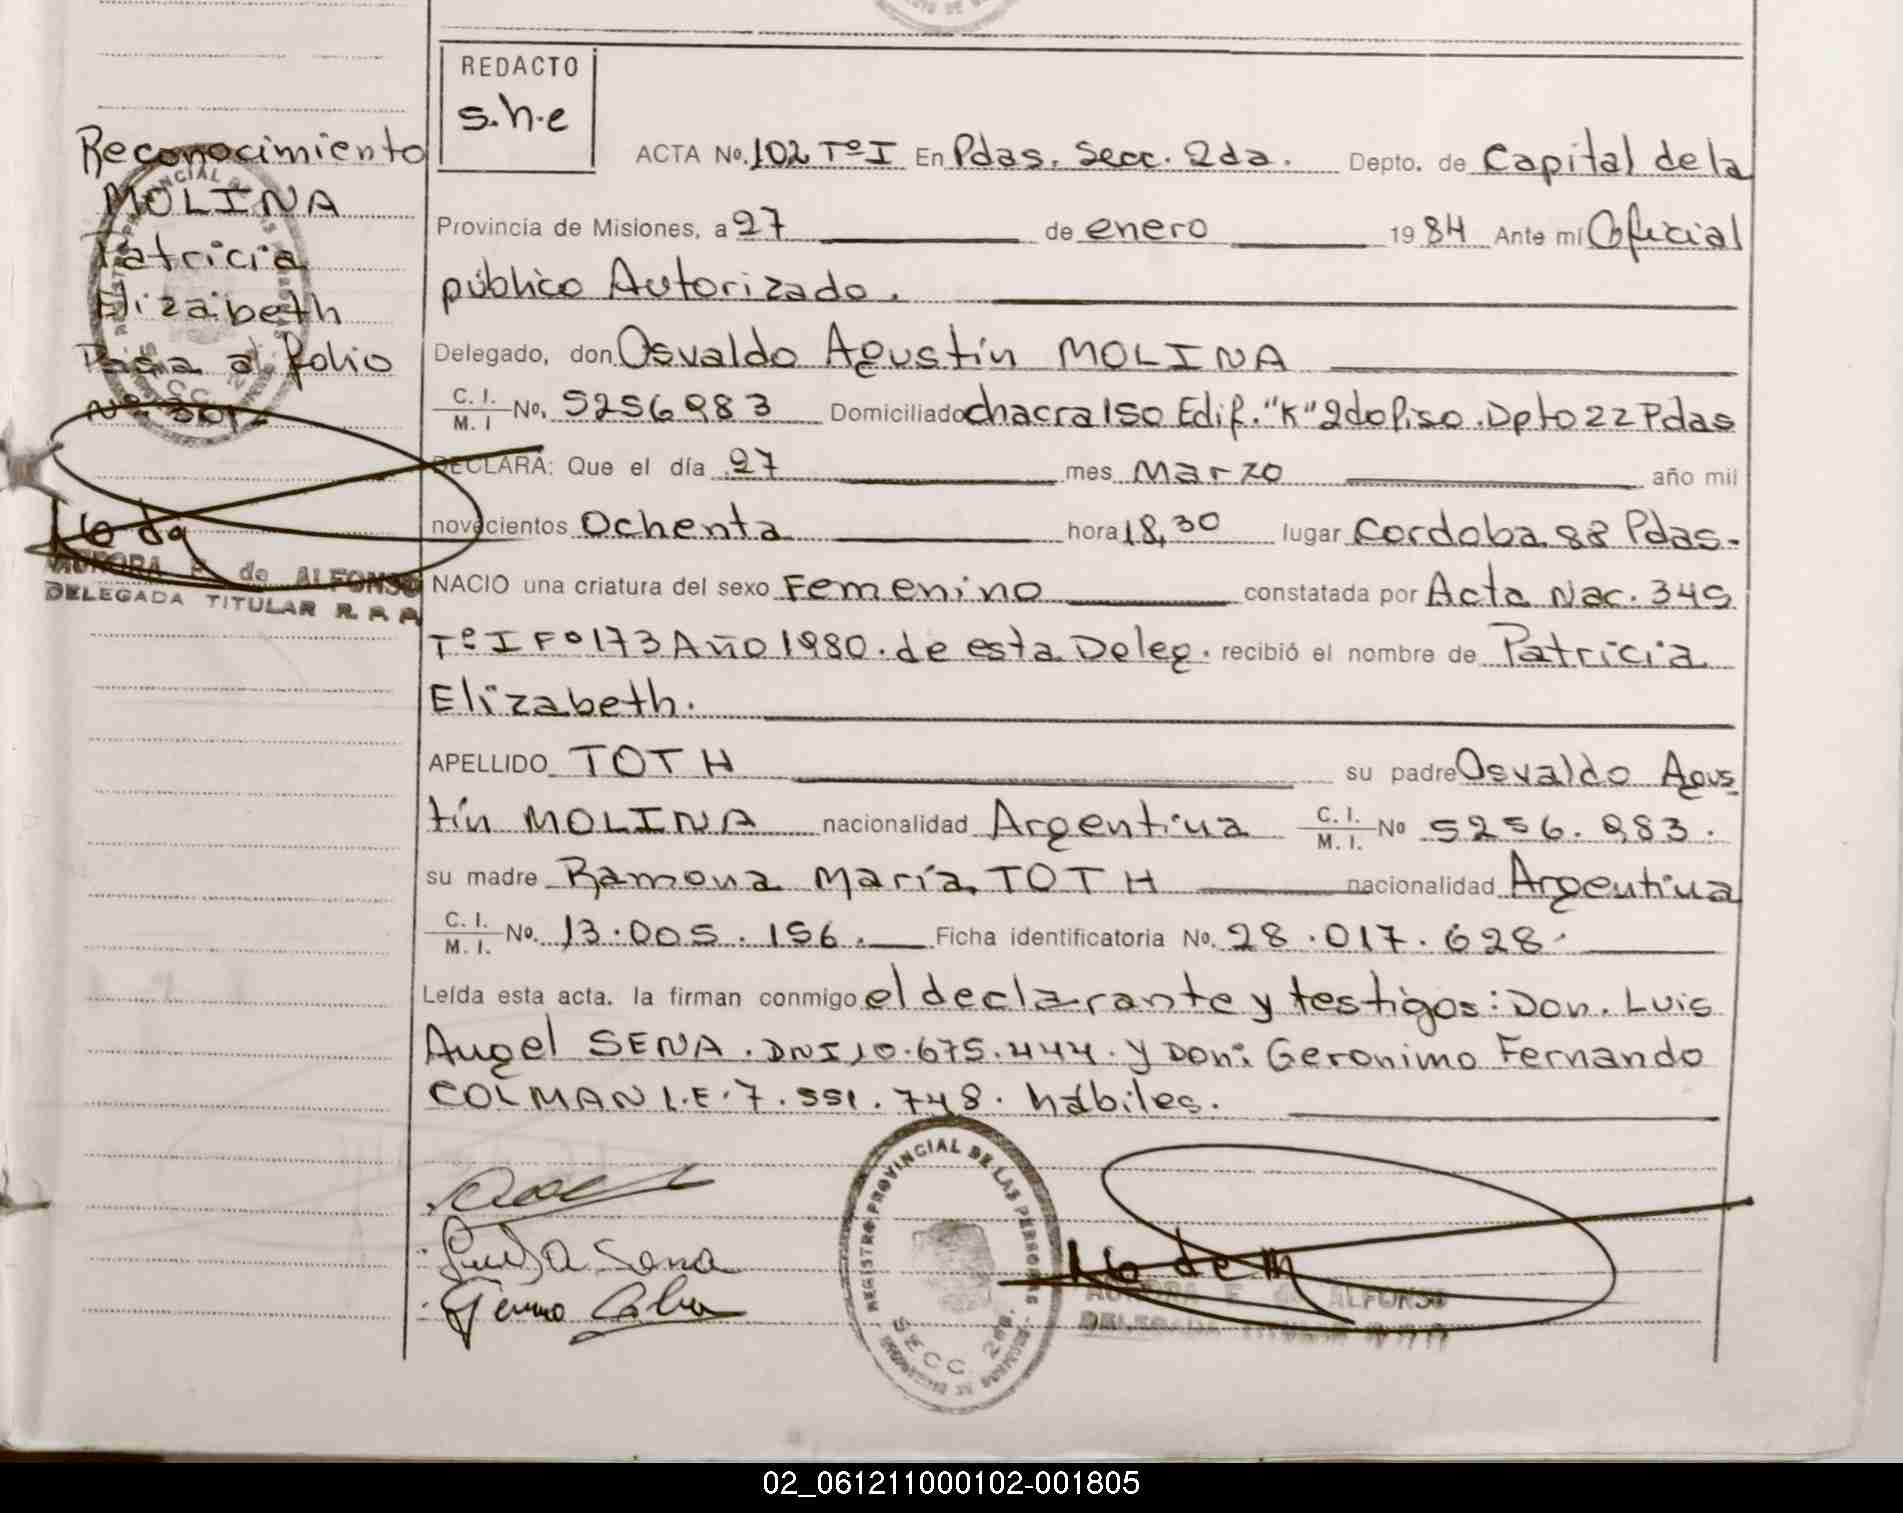 REDACTO
s.h.e
Reconocimiento
MOLINA
Patricia
Elizabeth
Pasa al folio
Nº
AURORA E. de ALFONSO
DELEGADA TITULAR R.P.P.
ACTA Nº. 102 Tº I En Pdas. Secc. 2da. Depto. de Capital de la
Provincia de Misiones, a 27 de enero 19 84 Ante mí Oficial
público Autorizado.
Delegado, don Osvaldo Agustín MOLINA
C. I. / M. I Nº. 5256983 Domiciliado chacra 150 Edif. "K" 2do Piso. Dpto 22 Pdas
DECLARA: Que el día 27 mes Marzo año mil
novecientos Ochenta hora 18,30 lugar Cordoba 88 Pdas.
NACIO una criatura del sexo Femenino constatada por Acta Nac. 345
Tº I Fº 173 Año 1980. de esta Deleg. recibió el nombre de Patricia
Elizabeth.
APELLIDO TOTH su padre Osvaldo Agus
tín MOLINA nacionalidad Argentina C. I. / M. I. Nº 5256.983.
su madre Ramona María TOTH nacionalidad Argentina
C. I. / M. I. Nº. 13.005.156. Ficha identificatoria Nº. 28.017.628.
Leída esta acta. la firman conmigo el declarante y testigos: Don. Luis
Angel SENA. DNI 10.675.444. y Don: Geronimo Fernando
COLMAN L.E. 7.551.748. hábiles.
Luis A Sena
REGISTRO PROVINCIAL DE LAS PERSONAS
SECC. 2da.
AURORA E. de ALFONSO
DELEGADA TITULAR
02_061211000102-001805